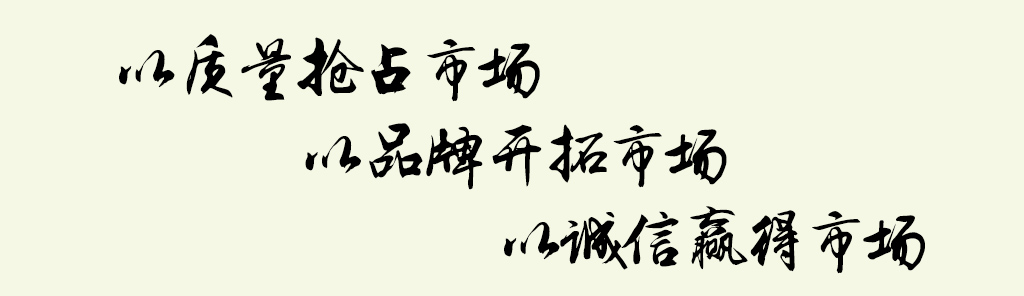 以质量抢占市场
以品牌开拓市场
以诚信赢得市场